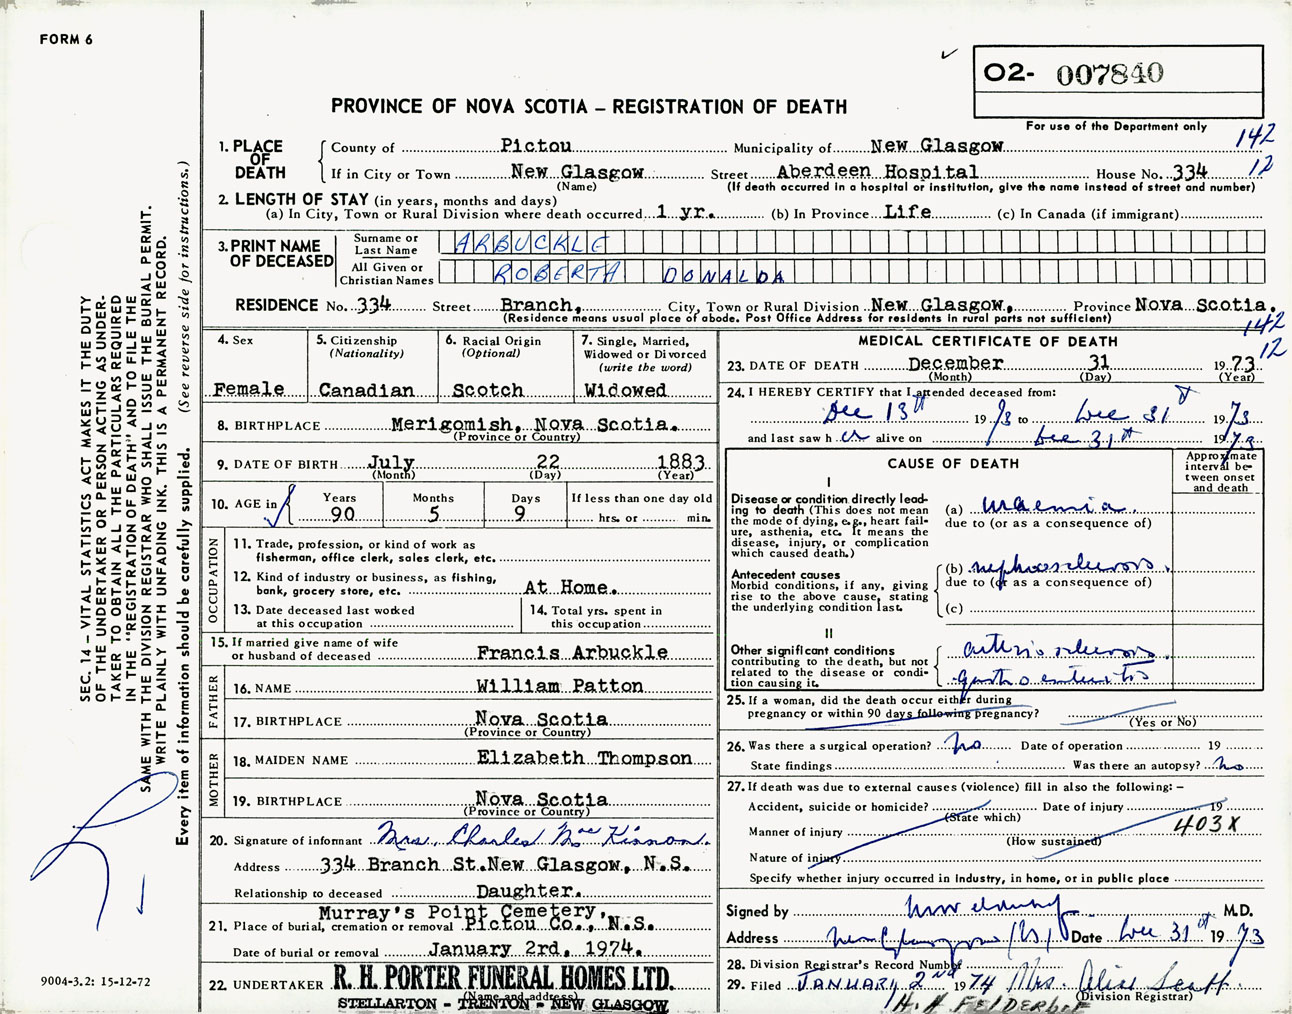 FORM 6
O2- 007840
PROVINCE OF NOVA SCOTIA – REGISTRATION OF DEATH
For use of the Department only
142
12
1. PLACE OF DEATH
County of Pictou Municipality of New Glasgow
If in City or Town New Glasgow Street Aberdeen Hospital House No. 334
(Name) (If death occurred in a hospital or institution, give the name instead of street and number)
2. LENGTH OF STAY (in years, months and days)
(a) In City, Town or Rural Division where death occurred 1 yr. (b) In Province Life (c) In Canada (if immigrant)
3. PRINT NAME OF DECEASED
Surname or Last Name ARBUCKLE
All Given or Christian Names ROBERTA DONALDA
RESIDENCE No. 334 Street Branch, City, Town or Rural Division New Glasgow, Province Nova Scotia.
(Residence means usual place of abode. Post Office Address for residents in rural parts not sufficient)
142
12
4. Sex
Female
5. Citizenship (Nationality)
Canadian
6. Racial Origin (Optional)
Scotch
7. Single, Married, Widowed or Divorced (write the word)
Widowed
8. BIRTHPLACE Merigomish, Nova Scotia.
(Province or Country)
9. DATE OF BIRTH July 22 1883
(Month) (Day) (Year)
10. AGE in
Years Months Days If less than one day old
90 5 9 hrs. or min.
OCCUPATION
11. Trade, profession, or kind of work as
fisherman, office clerk, sales clerk, etc.
12. Kind of industry or business, as fishing,
bank, grocery store, etc. At Home.
13. Date deceased last worked
at this occupation
14. Total yrs. spent in
this occupation
15. If married give name of wife
or husband of deceased Francis Arbuckle
FATHER
16. NAME William Patton
17. BIRTHPLACE Nova Scotia
(Province or Country)
MOTHER
18. MAIDEN NAME Elizabeth Thompson
19. BIRTHPLACE Nova Scotia
(Province or Country)
20. Signature of informant Mrs. Charles MacKinnon.
Address 334 Branch St. New Glasgow, N.S.
Relationship to deceased Daughter.
Murray's Point Cemetery,
21. Place of burial, cremation or removal Pictou Co., N.S.
Date of burial or removal January 2nd, 1974.
22. UNDERTAKER R. H. PORTER FUNERAL HOMES LTD.
(Name and address)
STELLARTON - TRENTON - NEW GLASGOW
MEDICAL CERTIFICATE OF DEATH
23. DATE OF DEATH December 31 1973
(Month) (Day) (Year)
24. I HEREBY CERTIFY that I attended deceased from:
Dec 13th 1973 to Dec 31st 1973
and last saw her alive on Dec 31st 1973
CAUSE OF DEATH
Approximate interval between onset and death
I
Disease or condition directly leading to death (This does not mean the mode of dying, e.g., heart failure, asthenia, etc. It means the disease, injury, or complication which caused death.)
(a) uraemia
due to (or as a consequence of)
Antecedent causes
Morbid conditions, if any, giving rise to the above cause, stating the underlying condition last.
(b) nephrosclerosis.
due to (or as a consequence of)
(c)
II
Other significant conditions contributing to the death, but not related to the disease or condition causing it.
arteriosclerosis.
gastroenteritis
25. If a woman, did the death occur either during
pregnancy or within 90 days following pregnancy?
(Yes or No)
26. Was there a surgical operation? no Date of operation 19
State findings Was there an autopsy? no
27. If death was due to external causes (violence) fill in also the following: –
Accident, suicide or homicide? Date of injury 19
(State which)
403X
Manner of injury
(How sustained)
Nature of injury
Specify whether injury occurred in Industry, in home, or in public place
Signed by M.D.
Address New Glasgow Date Dec 31st 1973
28. Division Registrar's Record Number
29. Filed JANUARY 2nd 1974 Mrs. Alise Scott.
(Division Registrar)
SEC. 14 – VITAL STATISTICS ACT MAKES IT THE DUTY
OF THE UNDERTAKER OR PERSON ACTING AS UNDER-
TAKER TO OBTAIN ALL THE PARTICULARS REQUIRED
IN THE "REGISTRATION OF DEATH" AND TO FILE THE
SAME WITH THE DIVISION REGISTRAR WHO SHALL ISSUE THE BURIAL PERMIT.
WRITE PLAINLY WITH UNFADING INK. THIS IS A PERMANENT RECORD.
Every item of information should be carefully supplied. (See reverse side for instructions.)
9004-3.2: 15-12-72